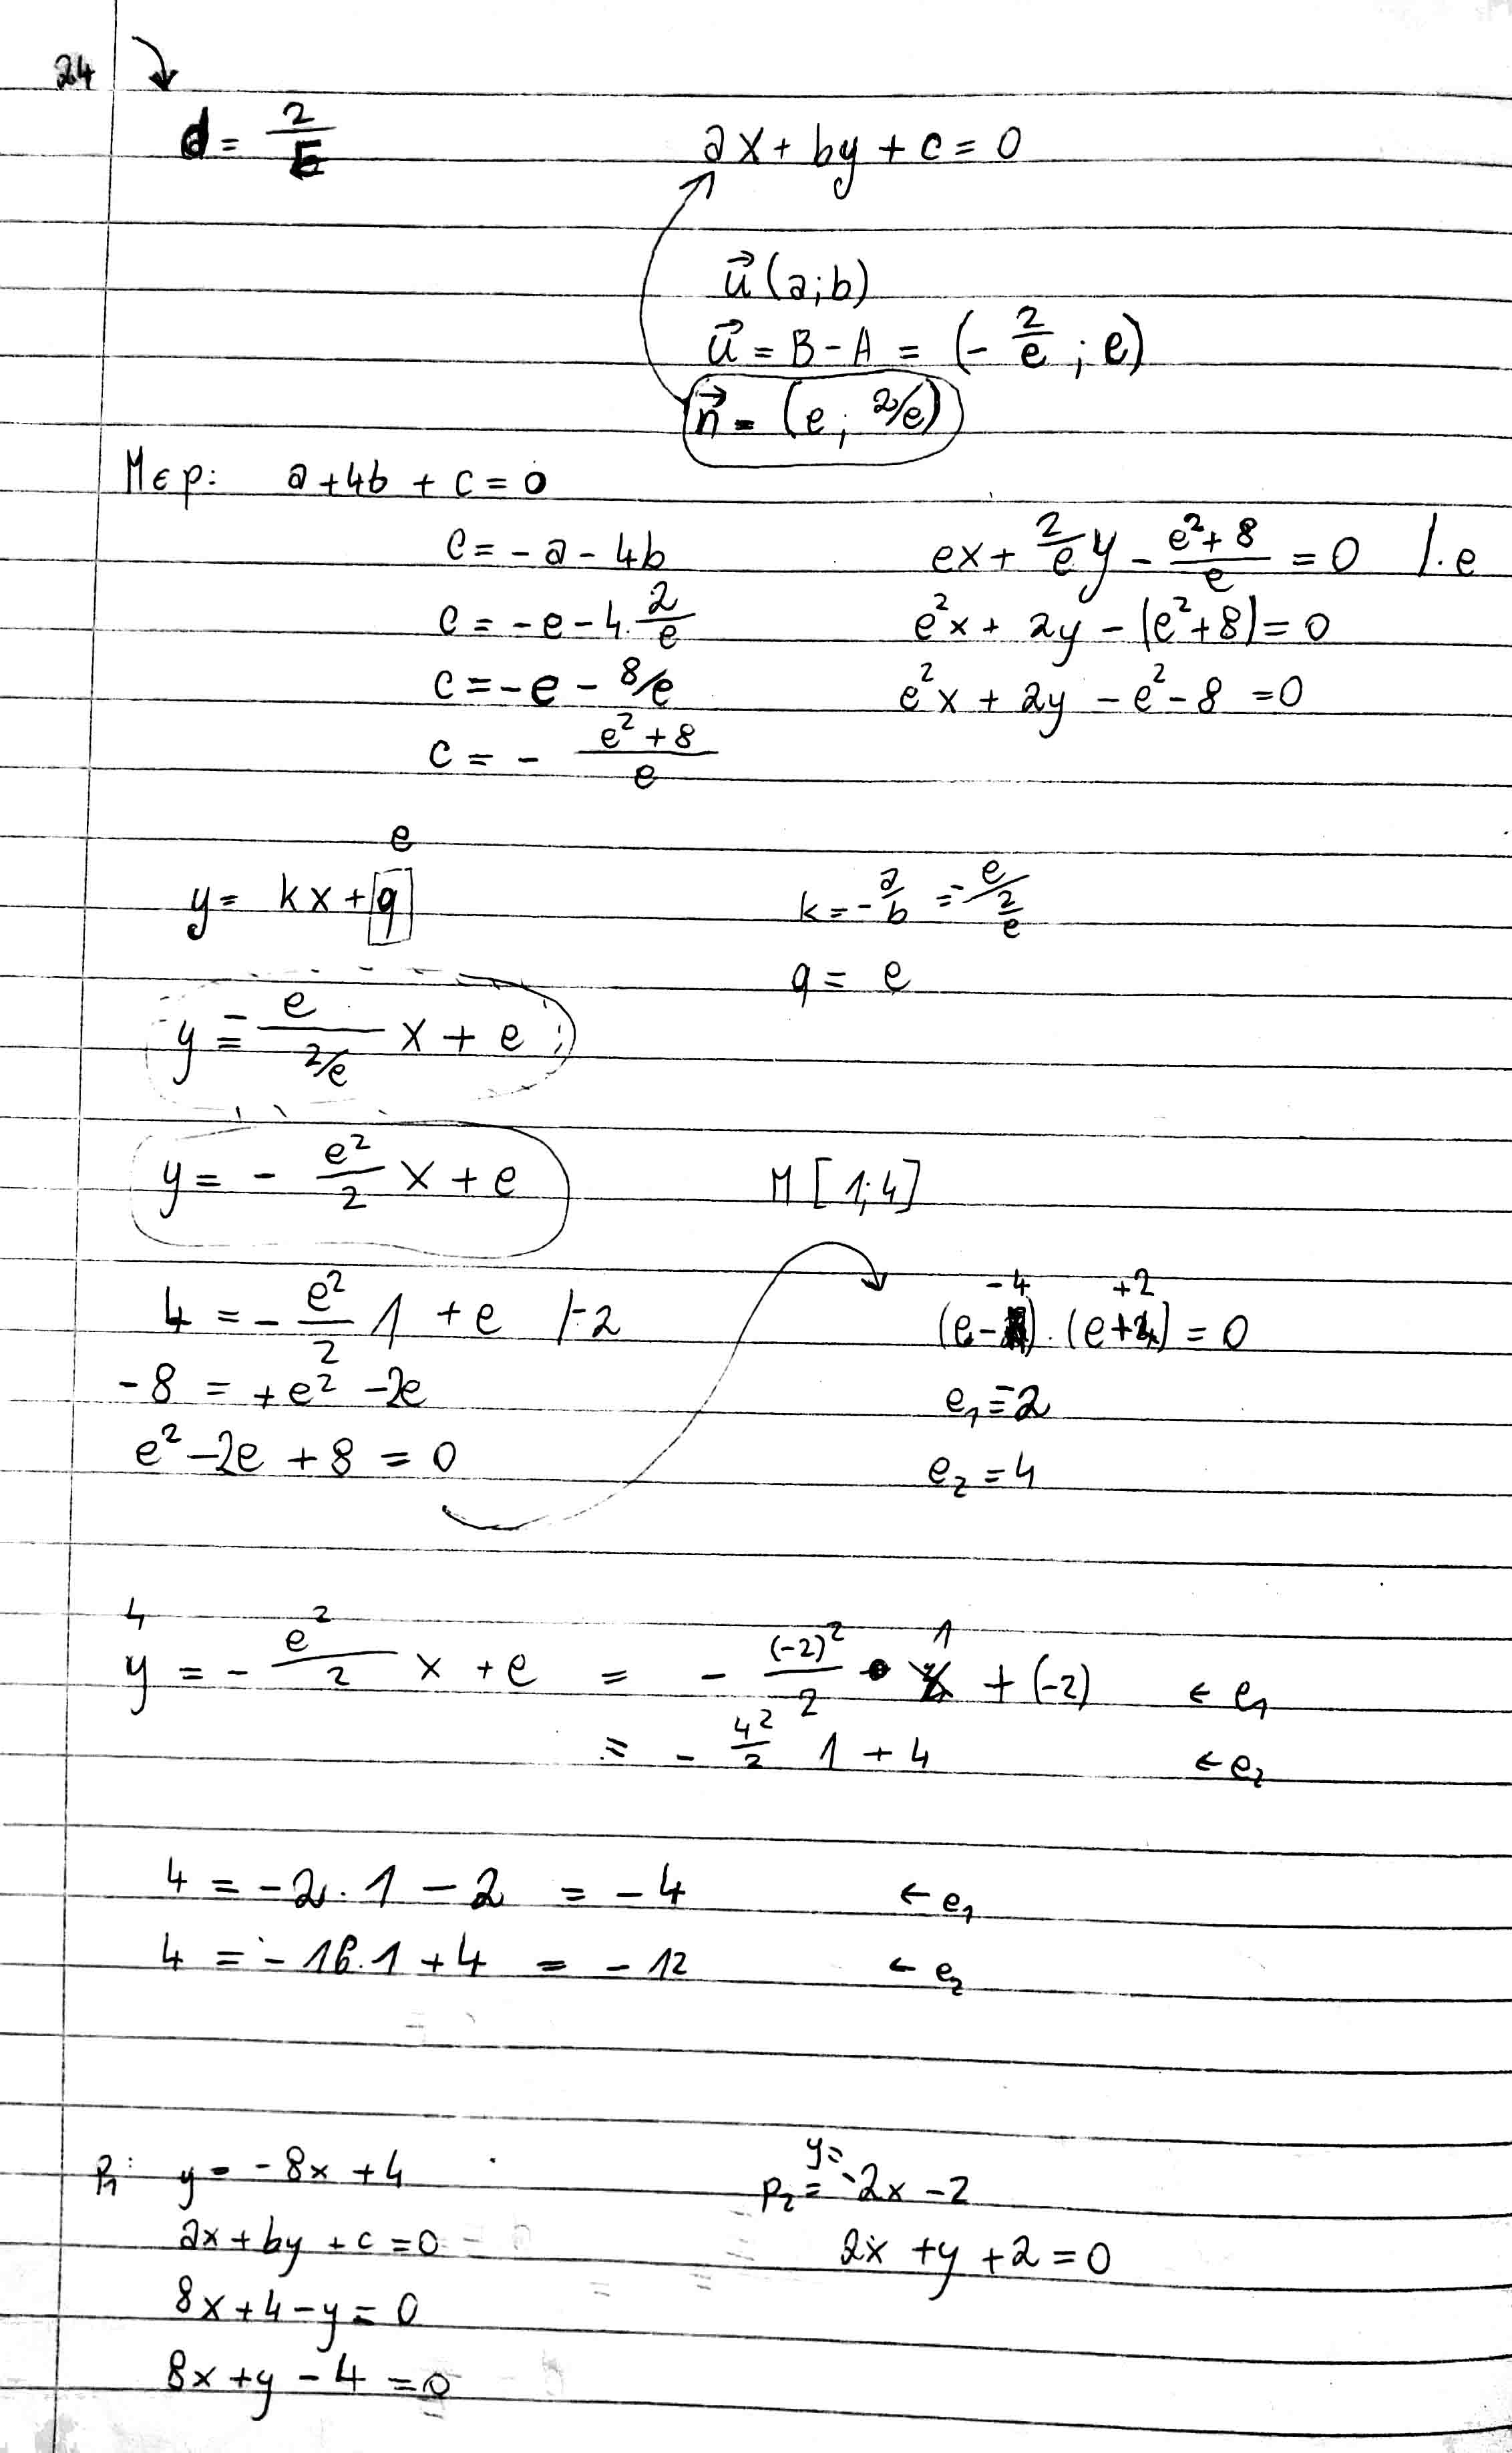 24
d = 2/E
ax + by + c = 0
u⃗ (a; b)
u⃗ = B - A = (- 2/e ; e)
n⃗ = (e ; 2/e)
M ∈ p: a + 4b + c = 0
c = - a - 4b
c = - e - 4 · 2/e
c = - e - 8/e
c = - (e² + 8)/e
ex + 2/e y - (e² + 8)/e = 0 /· e
e²x + 2y - (e² + 8) = 0
e²x + 2y - e² - 8 = 0
e
y = kx + q
k = - a/b = - e/(2/e)
q = e
y = - e/(2/e) x + e
y = - e²/2 x + e
M [1; 4]
4 = - e²/2 1 + e /·-2
-8 = + e² - 2e
e² - 2e + 8 = 0
-4 +2
(e - ) · (e + 4) = 0
e₁ = -2
e₂ = 4
4
y = - e²/2 x + e = - (-2)²/2 · 1 + (-2) ← e₁
= - 4²/2 1 + 4 ← e₂
4 = -2 · 1 - 2 = -4 ← e₁
4 = -16 · 1 + 4 = -12 ← e₂
p₁: y = -8x + 4
ax + by + c = 0
8x + 4 - y = 0
8x + y - 4 = 0
y =
p₂ = -2x - 2
2x + y + 2 = 0